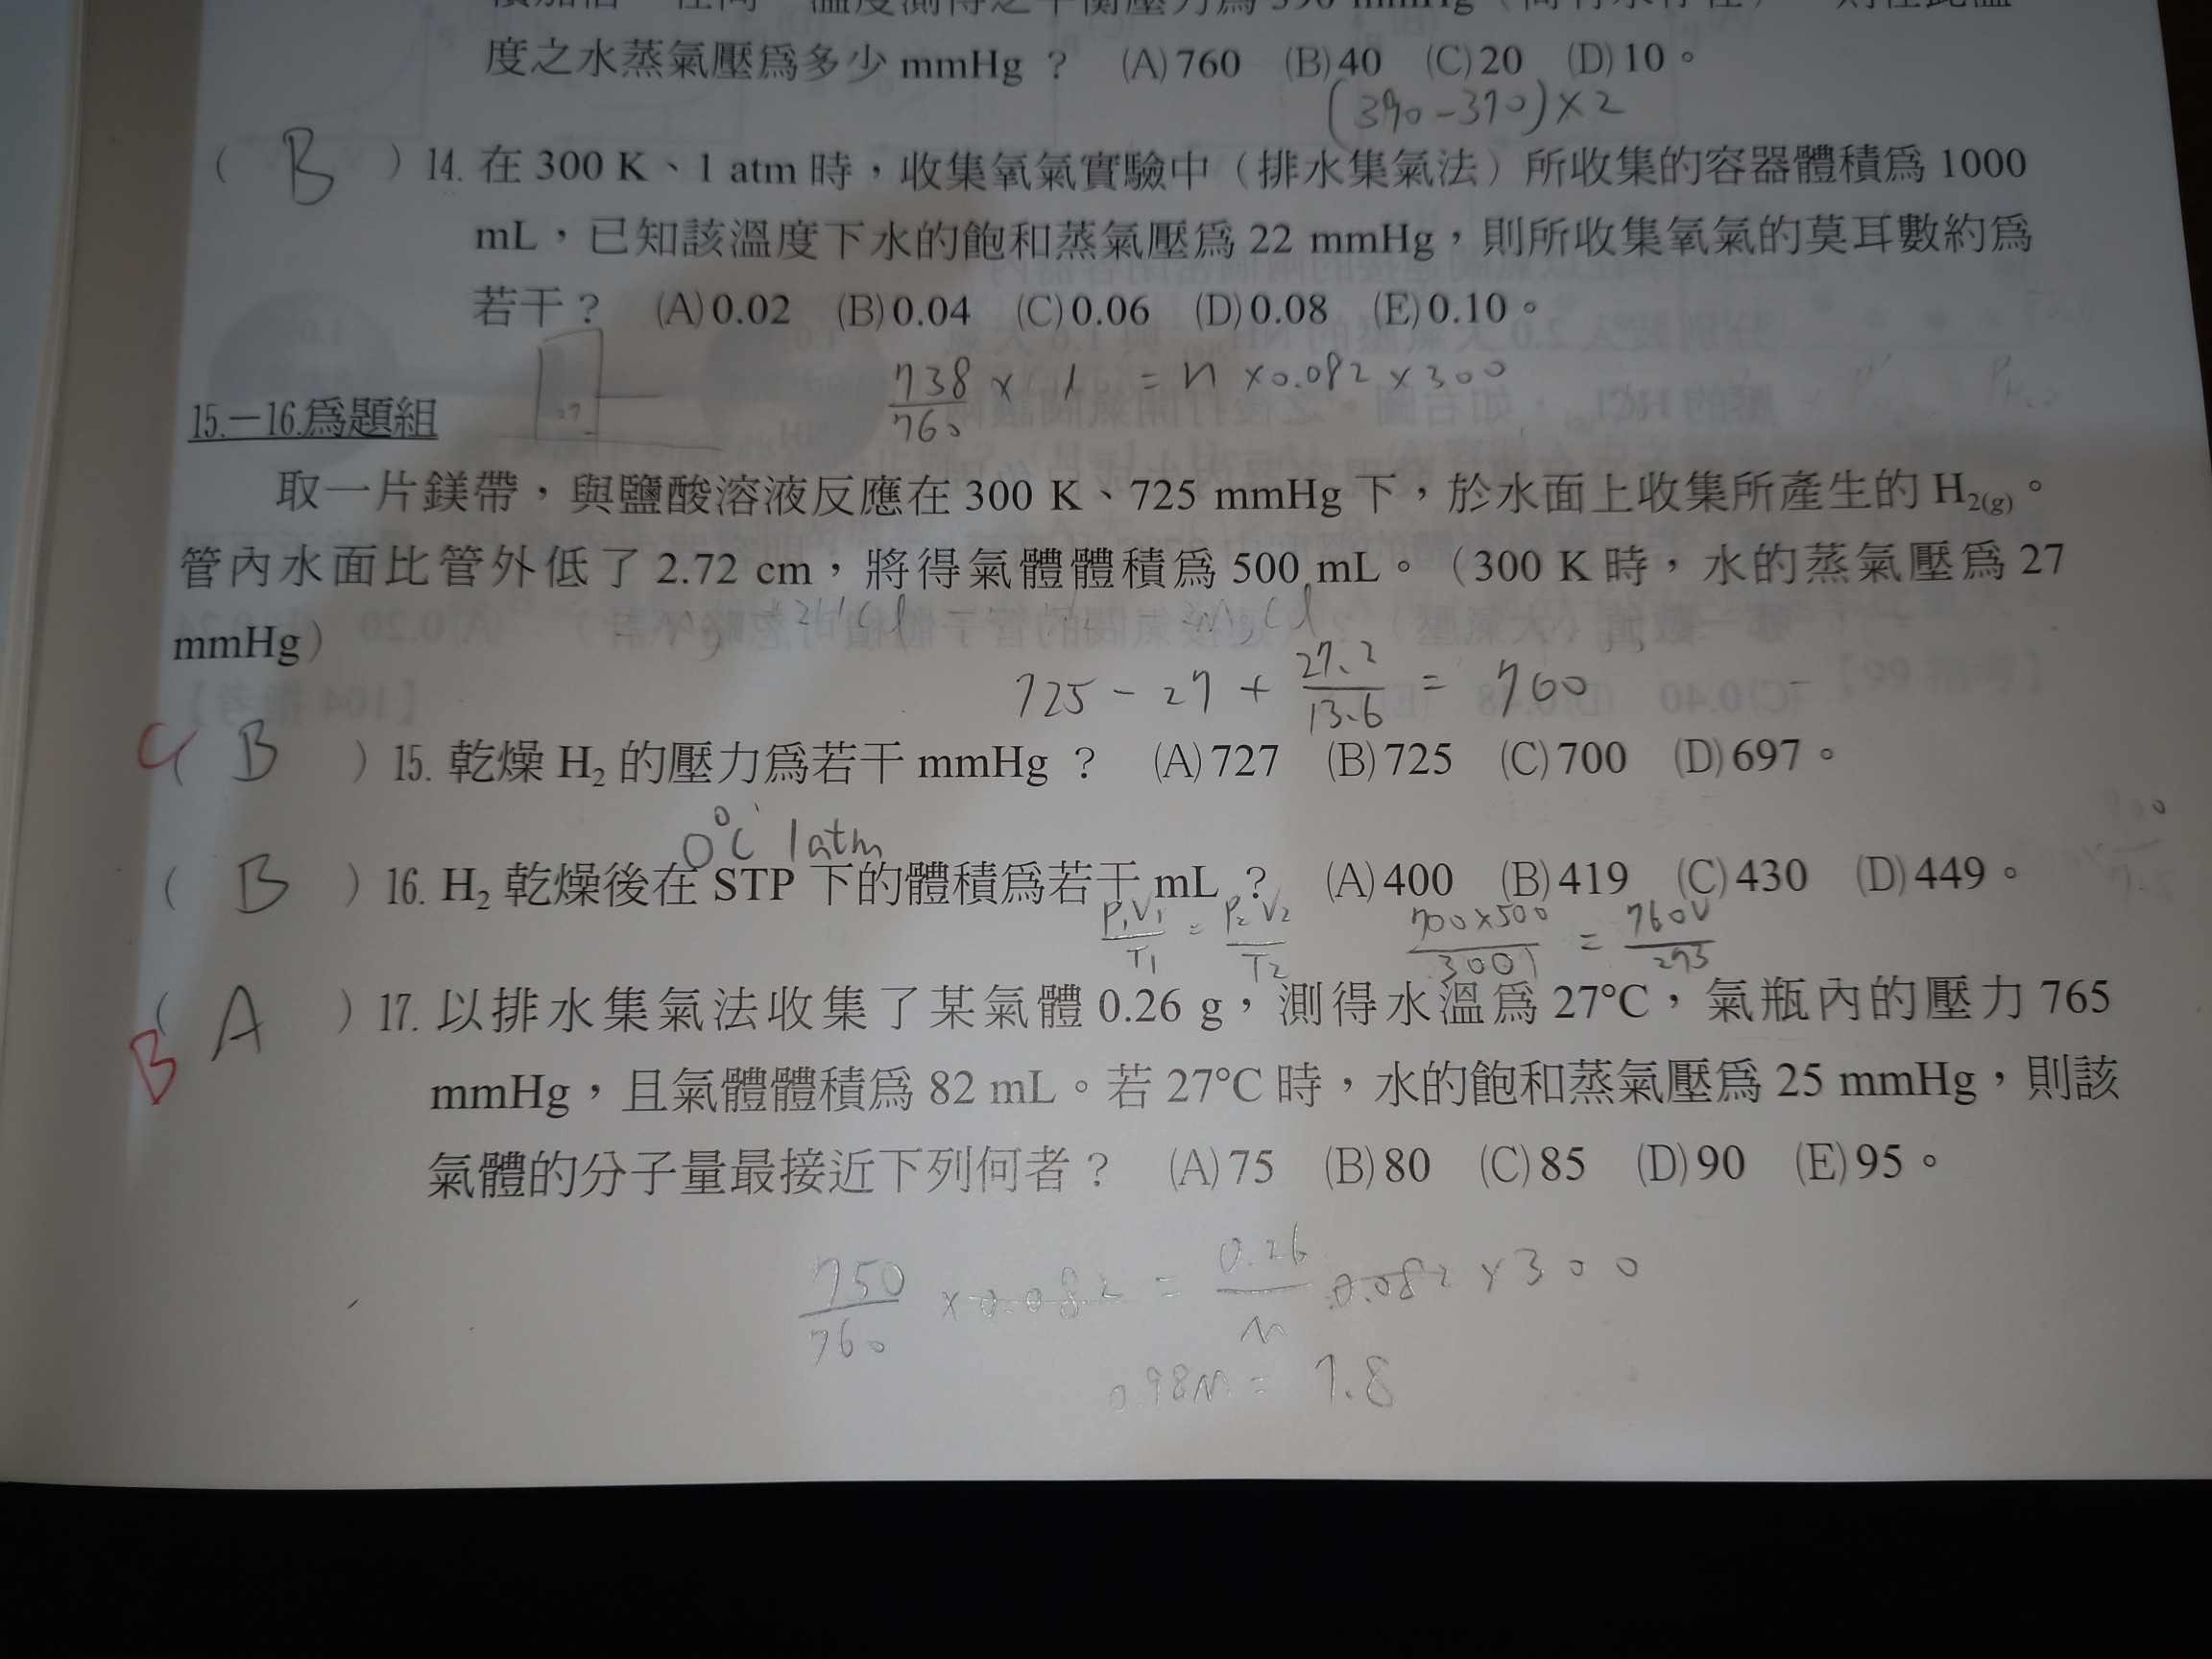 度之水蒸氣壓爲多少 mmHg ? (A)760 (B)40 (C)20 (D)10。
(390-370)×2
( B ) 14. 在 300 K、1 atm 時,收集氧氣實驗中(排水集氣法)所收集的容器體積爲 1000
mL,已知該溫度下水的飽和蒸氣壓爲 22 mmHg,則所收集氧氣的莫耳數約爲
若干? (A)0.02 (B)0.04 (C)0.06 (D)0.08 (E)0.10。
738/760 × 1 = n × 0.082 × 300
15.-16.爲題組
取一片鎂帶,與鹽酸溶液反應在 300 K、725 mmHg 下,於水面上收集所產生的 H2(g)。
管內水面比管外低了 2.72 cm,將得氣體體積爲 500 mL。(300 K 時,水的蒸氣壓爲 27
mmHg)
725 - 27 + 27.2/13.6 = 760
C ( B ) 15. 乾燥 H2 的壓力爲若干 mmHg ? (A)727 (B)725 (C)700 (D)697。
0°C 1atm
( B ) 16. H2 乾燥後在 STP 下的體積爲若干 mL ? (A)400 (B)419 (C)430 (D)449。
P1V1/T1 = P2V2/T2 700×500/300 = 760V/273
( A ) 17. 以排水集氣法收集了某氣體 0.26 g,測得水溫爲 27°C,氣瓶內的壓力 765
B
mmHg,且氣體體積爲 82 mL。若 27°C 時,水的飽和蒸氣壓爲 25 mmHg,則該
氣體的分子量最接近下列何者? (A)75 (B)80 (C)85 (D)90 (E)95。
750/760 × 0.082 = 0.26/M 0.082 × 300
0.98M = 7.8